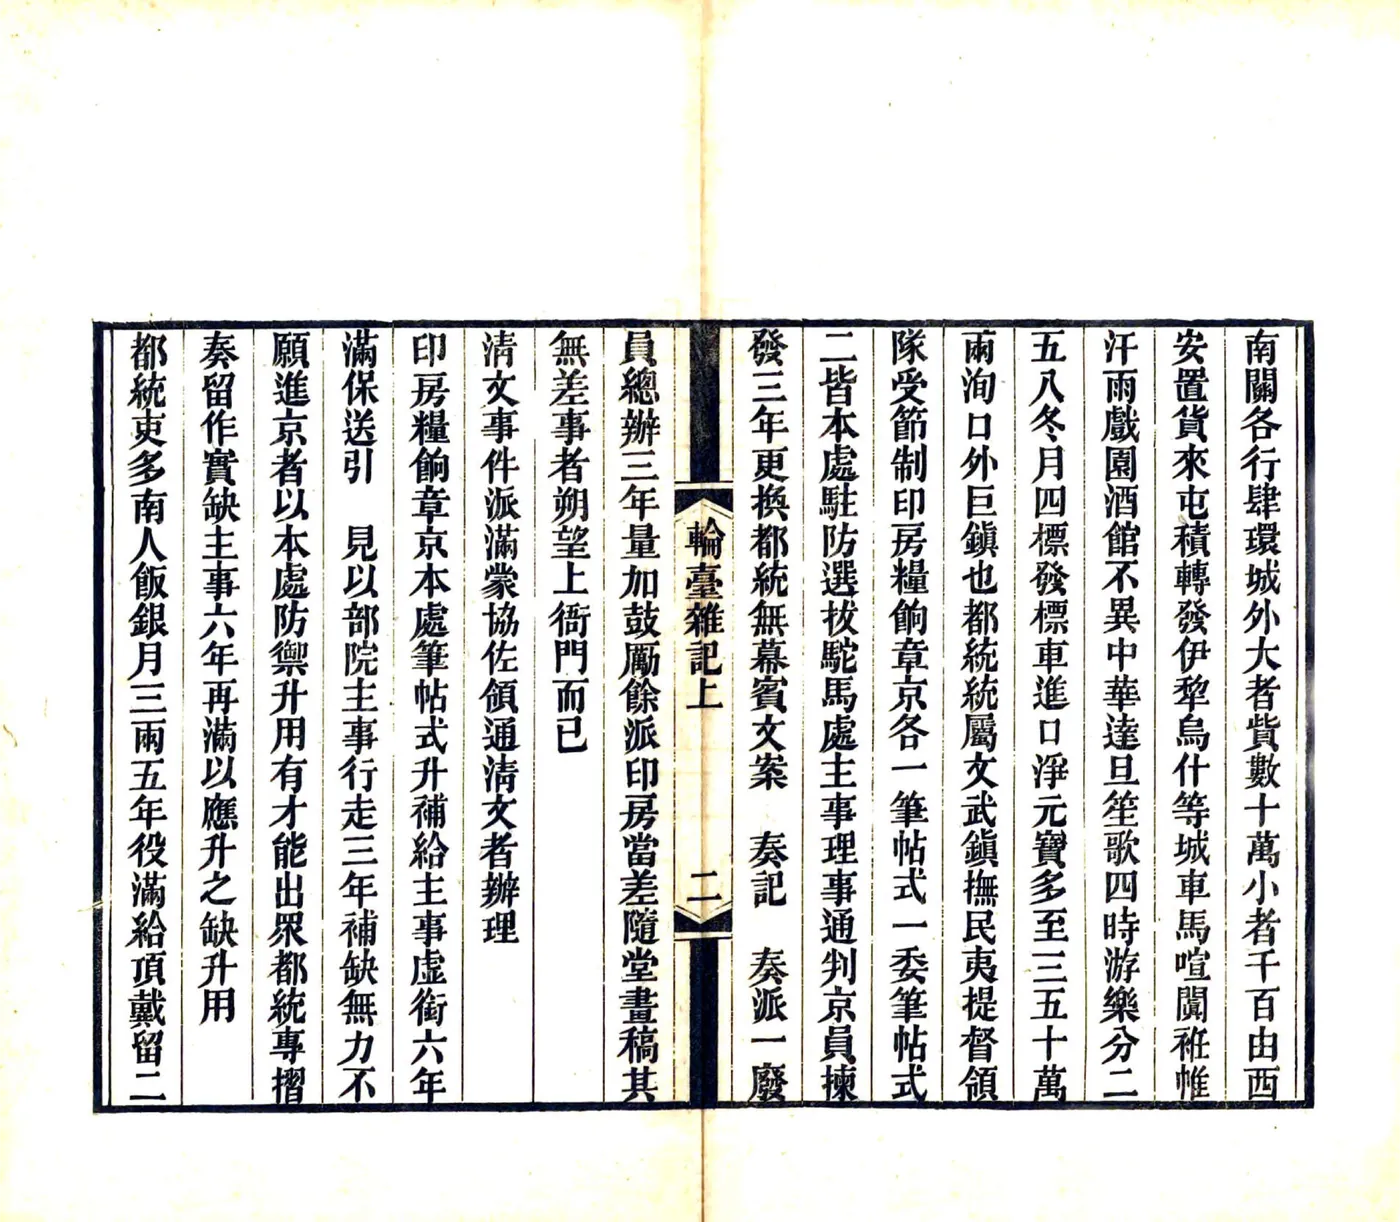 南關各行肆環城外大者貲數十萬小者千百由西
安置貨來屯積轉發伊犂烏什等城車馬喧闐袵帷
汗雨戲園酒館不異中華達旦笙歌四時游樂分二
五八冬月四標發標車進口淨元寶多至三五十萬
兩洵口外巨鎮也都統統屬文武鎮撫民夷提督領
隊受節制印房糧餉章京各一筆帖式一委筆帖式
二皆本處駐防選拔駝馬處主事理事通判京員揀
發三年更換都統無幕賓文案　奏記　奏派一廢
輪臺雜記上　二
員總辦三年量加鼓厲餘派印房當差隨堂畫稿其
無差事者朔望上衙門而已
清文事件派滿蒙協佐領通清文者辦理
印房糧餉章京本處筆帖式升補給主事虛銜六年
滿保送引　見以部院主事行走三年補缺無力不
願進京者以本處防禦升用有才能出眾都統專摺
奏留作實缺主事六年再滿以應升之缺升用
都統吏多南人飯銀月三兩五年役滿給頂戴留二